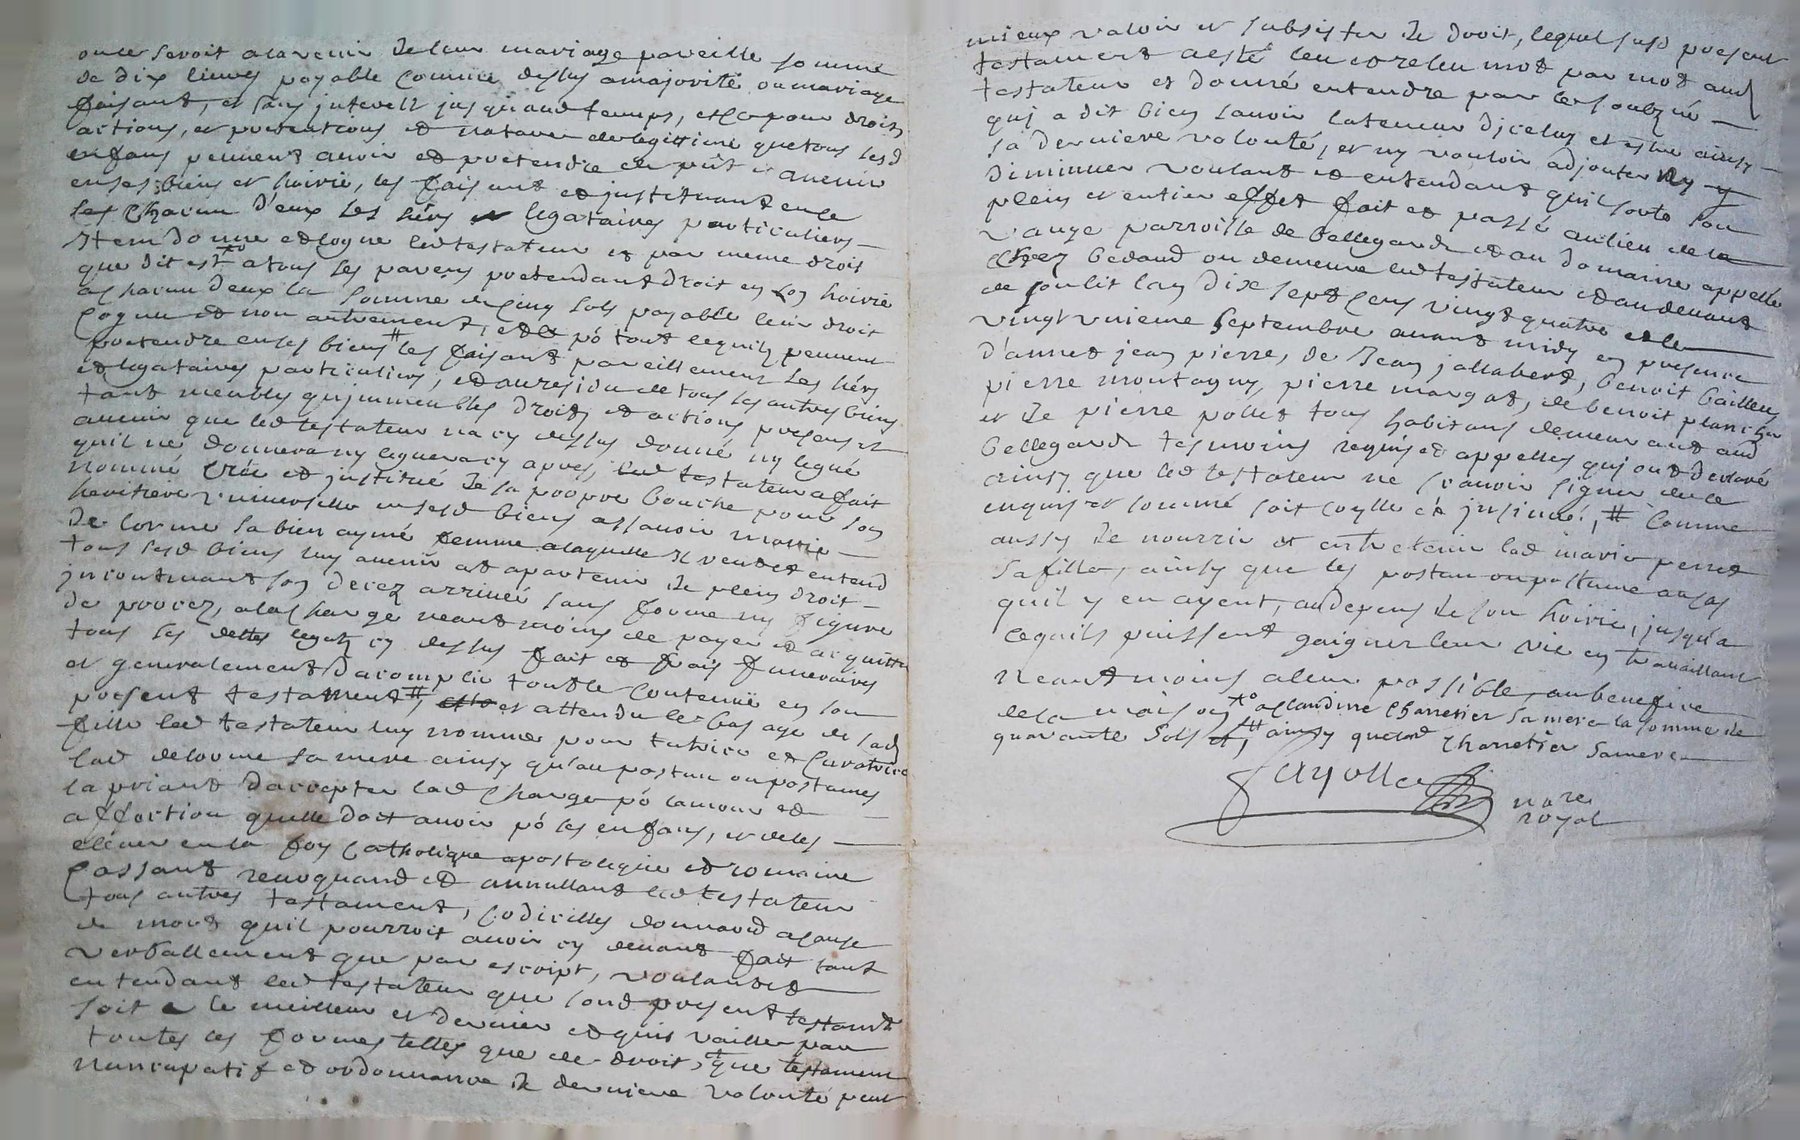 ou ce seroit a lavenir de leur mariage pareille somme
de dix livres payable comme dessus a majorité ou mariage
faisant, et sans interest jusqu'aud temps, et ce pour droits
actions, et pretentions et nature de legittime que tous sesd
enfans peuvent avoir et pretendre de pnt et avenir
en ses biens et hoirie, les faisant et instituant en ce
ses chacun d'eux ses hérs et legataires particuliers
Item donne et legue led testateur et par meme droit
que dit est a tous ses parens pretendant droit en son hoirie
a chacun deux la somme de cinq sols payable leur droit
cognu et non autrement, et ce po tout ce quils peuvent
pretendre en ses biens # les faisant pareillement ses hérs
et legataires particuliers, et au residu de tous ses autres biens
tant meubles qu'immeubles droits et actions presens et
avenir que led testateur n'a cy dessus donné ny legué
quil ne donnera ny leguera cy apres, led testateur a fait
nommé créé et institué de sa propre bouche pour son
heritiere universelle en sesd biens assavoir mattie
de lorme sa bien aymé femme a laquelle il veut et entend
tous sesd biens luy avenir et apartenir de plein droit
incontinant son decez arrivée sans forme ny figure
de procez, a la charge neantmoins de payer et acquitter
tous ses dettes legatz cy dessus fait et frais funeraires
et generalement d'acomplir tout le contenu en son
present testament, # et attendu le bas age de sad
fille led testateur luy nomme pour tutrice et curatrice
lad delorme sa mere ainsy qu'au postum ou postumes
la priant d'accepter lad charge po lamour et
affection quelle doit avoir po ses enfans, et de les
elever en la foy catholique apostolique et romaine
cassant revoquand et annullant led testateur
tous autres testament, codicilles donnaon a cause
de mort quil pourroit avoir cy devant fait tant
verballement que par escript, voulant et
entendant led testateur que sond present testamt
soit le meilleur et dernier et quil vaille par
toutes les formes telles que de droit, que testament
nuncupatif et ordonnance de derniere volonté peut
mieux valoir et subsister de droit, lequel susd present
testament a esté leu et releu mot par mot aud
testateur et donné entendre par le soubzné
qui a dit bien savoir la teneur d'iceluy et estre ainsy
sa derniere volonté, et ny vouloir adjouter ny y
diminuer voulant et entendant quil sorte son
plein et entier effet fait et passé au lieu de la
vauze parroisse de bellegarde et au domaine appellé
chez bedaud ou demeure led testateur et au devant
de son lit lan dix sept cens vingt quatre et le
vingt unieme septembre avant midy en presence
d'annet jean pierre, de Jean jallabert, benoit bailleux
pierre montagny, pierre margat, de benoit planchet
et de pierre pollet tous habitans demeurant aud
bellegarde tesmoins requis et appelles qui ont declaré
ainsy que led testateur ne scavoir signer de ce
enquis et sommé soit coylle et insinué, # comme
aussy de nourrir et entretenir lad marie perret
sa fille, ainsy que les postum ou postume en cas
quil y en ayent, au depens de son hoirie, jusqu'a
ce quils puissent gaigner leur vie en travaillant
neantmoins a leur possible, au benefice
de la maison +o a claudine charretier sa mere la somme de
quarante sols # ainsy que lad charretier sa mere
fayolle
nore
royal